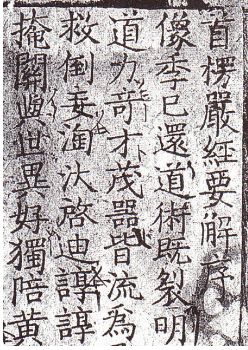 首楞嚴經要解序
像季已還道術既裂明
道力竒才茂器皆流為
救倒妄淪汰啓迪諄諄
掩關與世異好獨陪黃